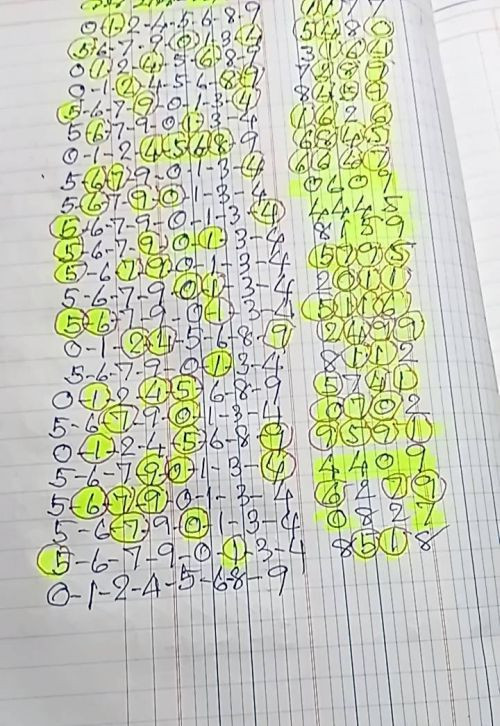 0-1-2-4-5-6-8-9
5-6-7-9-0-1-3-4 5480
0-1-2-4-5-6-8-9 3164
0-1-2-4-5-6-8-9 7487
5-6-7-9-0-1-3-4 8459
5-6-7-9-0-1-3-4 1626
0-1-2-4-5-6-8-9 6845
5-6-7-9-0-1-3-4 6667
5-6-7-9-0-1-3-4 0609
5-6-7-9-0-1-3-4 4445
5-6-7-9-0-1-3-4 8159
5-6-7-9-0-1-3-4 5795
5-6-7-9-0-1-3-4 2011
5-6-7-9-0-1-3-4 5116
0-1-2-4-5-6-8-9 2499
5-6-7-9-0-1-3-4 8112
0-1-2-4-5-6-8-9 5741
5-6-7-9-0-1-3-4 0702
0-1-2-4-5-6-8-9 9591
5-6-7-9-0-1-3-4 4409
5-6-7-9-0-1-3-4 6279
5-6-7-9-0-1-3-4 0827
5-6-7-9-0-1-3-4 8518
0-1-2-4-5-6-8-9